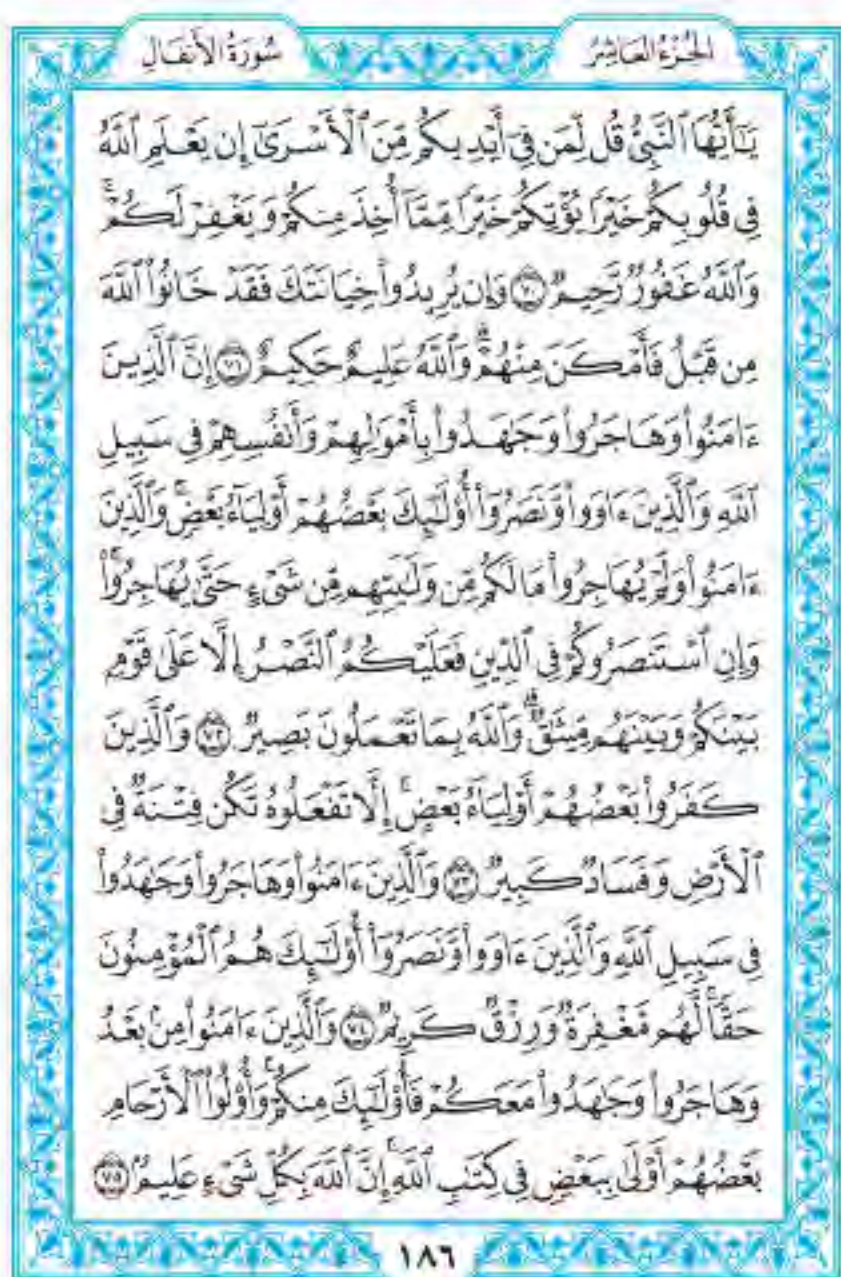 الجُزْءُ العَاشِرُ
سُورَةُ الأَنفَالِ
يَـٰٓأَيُّهَا ٱلنَّبِىُّ قُل لِّمَن فِىٓ أَيْدِيكُم مِّنَ ٱلْأَسْرَىٰٓ إِن يَعْلَمِ ٱللَّهُ
فِى قُلُوبِكُمْ خَيْرًا يُؤْتِكُمْ خَيْرًا مِّمَّآ أُخِذَ مِنكُمْ وَيَغْفِرْ لَكُمْ ۗ
وَٱللَّهُ غَفُورٌ رَّحِيمٌ ٧٠ وَإِن يُرِيدُوا۟ خِيَانَتَكَ فَقَدْ خَانُوا۟ ٱللَّهَ
مِن قَبْلُ فَأَمْكَنَ مِنْهُمْ ۗ وَٱللَّهُ عَلِيمٌ حَكِيمٌ ٧١ إِنَّ ٱلَّذِينَ
ءَامَنُوا۟ وَهَاجَرُوا۟ وَجَـٰهَدُوا۟ بِأَمْوَٰلِهِمْ وَأَنفُسِهِمْ فِى سَبِيلِ
ٱللَّهِ وَٱلَّذِينَ ءَاوَوا۟ وَّنَصَرُوٓا۟ أُو۟لَـٰٓئِكَ بَعْضُهُمْ أَوْلِيَآءُ بَعْضٍ ۚ وَٱلَّذِينَ
ءَامَنُوا۟ وَلَمْ يُهَاجِرُوا۟ مَا لَكُم مِّن وَلَـٰيَتِهِم مِّن شَىْءٍ حَتَّىٰ يُهَاجِرُوا۟ ۚ
وَإِنِ ٱسْتَنصَرُوكُمْ فِى ٱلدِّينِ فَعَلَيْكُمُ ٱلنَّصْرُ إِلَّا عَلَىٰ قَوْمٍۭ
بَيْنَكُمْ وَبَيْنَهُم مِّيثَـٰقٌ ۗ وَٱللَّهُ بِمَا تَعْمَلُونَ بَصِيرٌ ٧٢ وَٱلَّذِينَ
كَفَرُوا۟ بَعْضُهُمْ أَوْلِيَآءُ بَعْضٍ ۚ إِلَّا تَفْعَلُوهُ تَكُن فِتْنَةٌ فِى
ٱلْأَرْضِ وَفَسَادٌ كَبِيرٌ ٧٣ وَٱلَّذِينَ ءَامَنُوا۟ وَهَاجَرُوا۟ وَجَـٰهَدُوا۟
فِى سَبِيلِ ٱللَّهِ وَٱلَّذِينَ ءَاوَوا۟ وَّنَصَرُوٓا۟ أُو۟لَـٰٓئِكَ هُمُ ٱلْمُؤْمِنُونَ
حَقًّا ۚ لَّهُم مَّغْفِرَةٌ وَرِزْقٌ كَرِيمٌ ٧٤ وَٱلَّذِينَ ءَامَنُوا۟ مِنۢ بَعْدُ
وَهَاجَرُوا۟ وَجَـٰهَدُوا۟ مَعَكُمْ فَأُو۟لَـٰٓئِكَ مِنكُمْ ۚ وَأُو۟لُوا۟ ٱلْأَرْحَامِ
بَعْضُهُمْ أَوْلَىٰ بِبَعْضٍ فِى كِتَـٰبِ ٱللَّهِ ۗ إِنَّ ٱللَّهَ بِكُلِّ شَىْءٍ عَلِيمٌۢ ٧٥
١٨٦